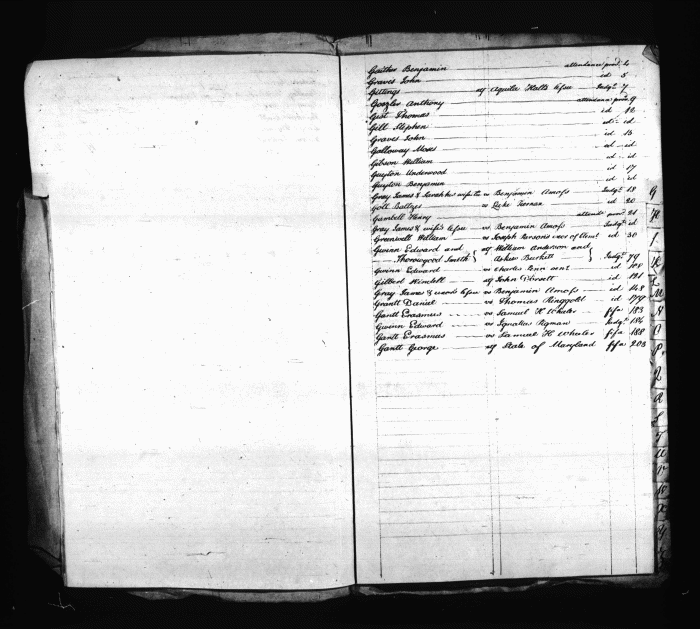 Gaither Benjamin attendance prov'd 4
Graves John id 5
Gittings agt Aquila Halls Lessee Judgt 7
Goezler Anthony attendance prov'd 9
Gest Thomas id 12
Gill Stephen id - id
Graves John id 13
Galloway Moses id - id
Gibson William id - id
Guyton Underwood id 17
Guyton Benjamin id id
Gray James & Sarah his wife vs Benjamin Amoss Judgt 18
Goll Baltzer vs Luke Tiernan id 20
Gambell Henry attendce prov'd 21
Gray James & wife's Lessee vs Benjamin Amoss Judgt id
Greenwell William vs Joseph Parsons id 30
Gwinn Edward and agt William Anderson and
Thorowgood Smith Asher Burkitt Judgt 79
Gwinn Edward vs Charles id 108
Gilbert Windell agt John Dorsett id 121
Gray James & Lessee vs Benjamin Amoss id 148
Grantt Daniel vs Thomas Ringgold id 179
Gantt Erasmus vs Samuel H Wheeler fifa 183
Gwinn Edward vs Ignatius Pigman Judgt 186
Gantt Erasmus vs Samuel H Wheeler fifa 188
Gantt George agt State of Maryland fifa 203
G
H
I
K
L
M
N
O
P
Q
R
S
T
U
V
W